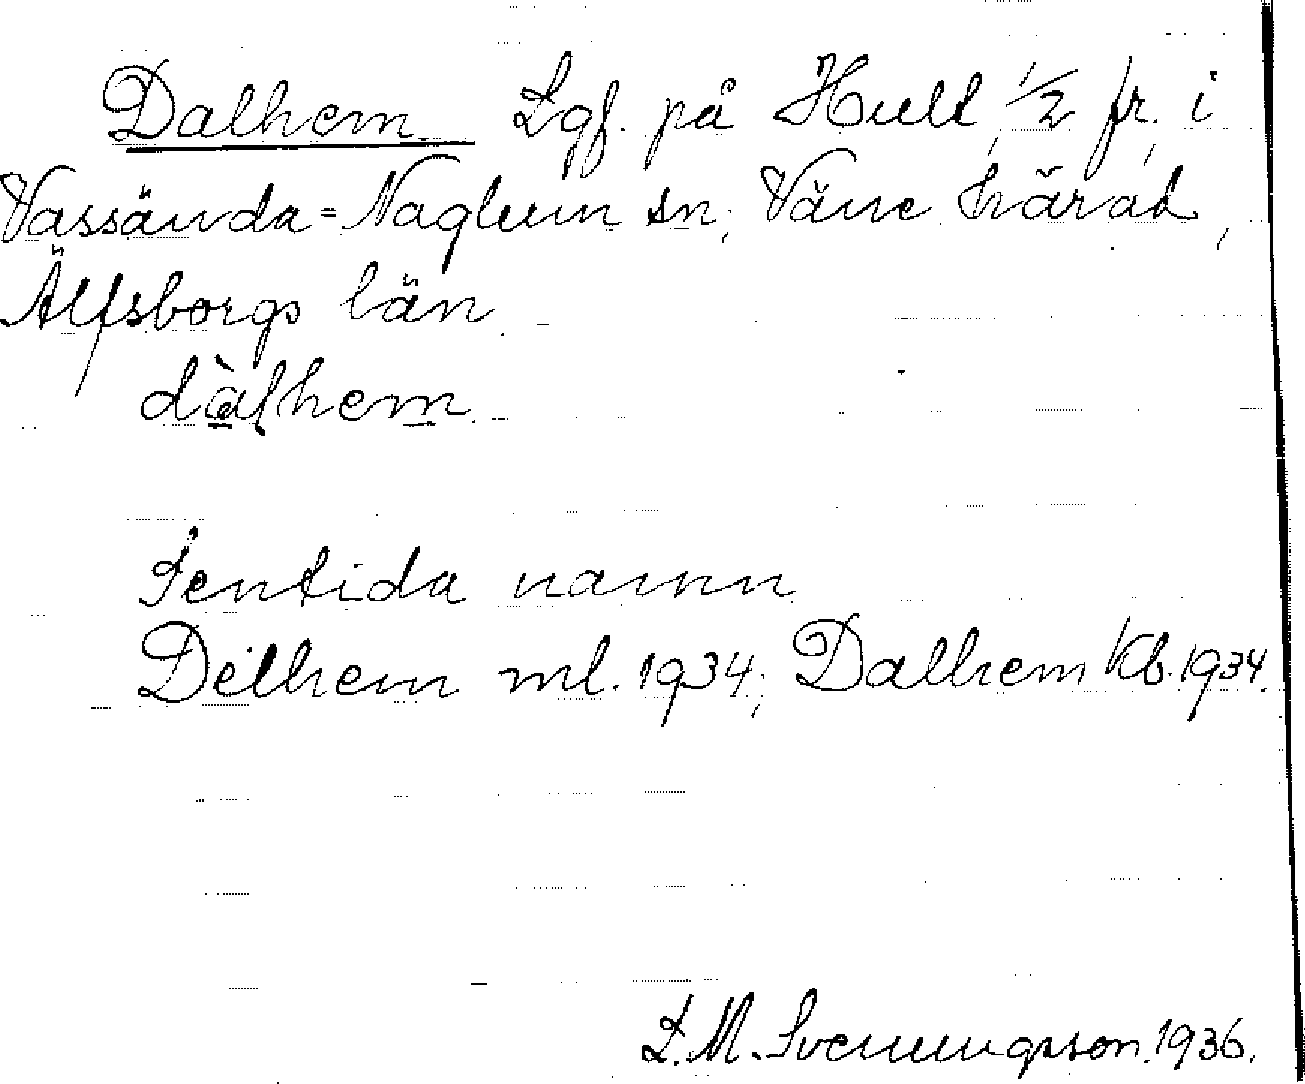 Dalhem Lgf. på Hult 1/2 fr. i
Vassända=Naglum sn, Väne härad,
Älfsborgs län
dàlhem.
Sentida namn.
Delhem ml. 1934; Dalhem Kb. 1934.
L. M. Svenungsson. 1936.